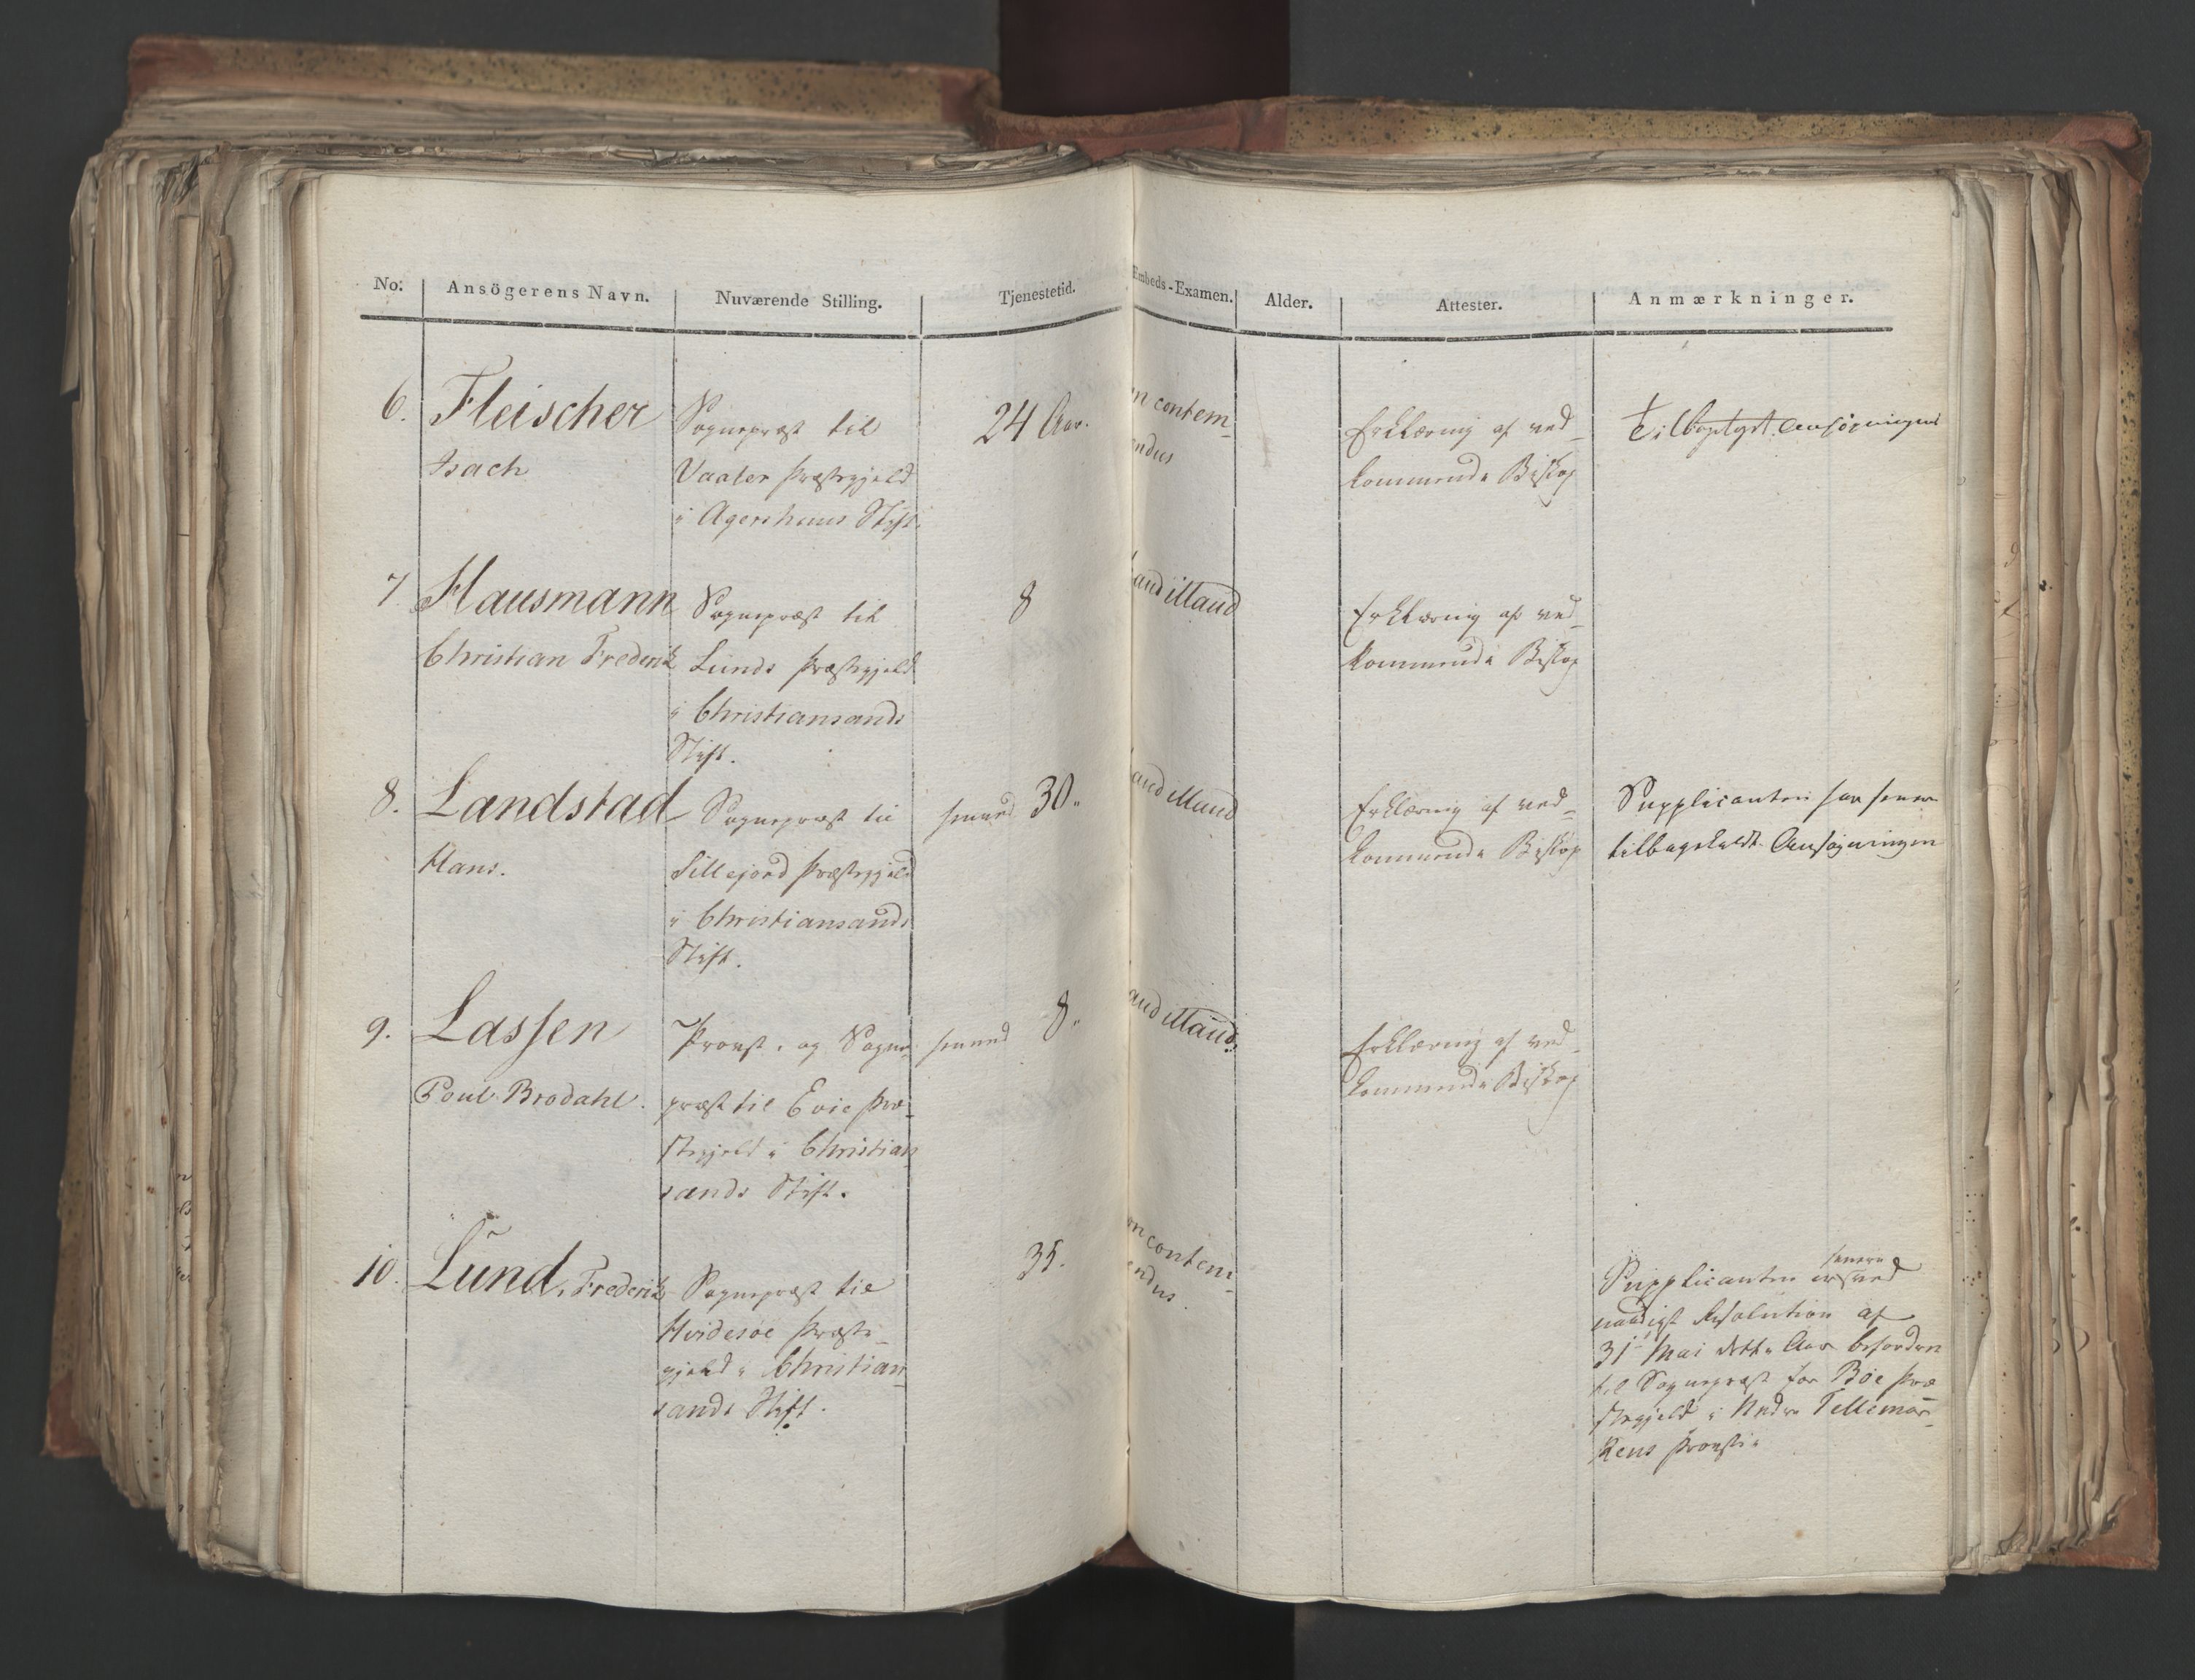 No.
Ansögerens Navn.
Nuværende Stilling.
Tjenestetid.
Embeds-Examen.
Alder.
Attester.
Anmærkninger.
6.
Fleischer
Isach
Sognepræst til
Vaaler Præstegjeld
i Agershuus Stift.
24 Aar.
n contem-
ndus
Erklæring af ved-
kommende Biskop
Ansögningen
7
Hausmann
Christian Frederik
Sognepræst til
Lunds Præstegjeld
i Christiansands
Stift.
8
aud illaud
Erklæring af ved-
kommende Biskop
8.
Landstad
Hans.
Sognepræst til
Sillejord Præstegjeld
i Christiansands
Stift.
30.
aud illaud
Erklæring af ved-
kommende Biskop
Supplicanten har senere
tilbagekaldt Ansögningen
9.
Lassen
Poul Brodahl.
Provst og Sogne-
præst til Evie Præ-
stegjeld i Christian
sands Stift.
8.
aud illaud.
Erklæring af ved-
kommende Biskop
10.
Lund, Frederik
Sognepræst til
Hvidesöe Præste-
gjeld i Christian-
sands Stift.
35.
n contem-
endus.
senere
Supplicanten er ved
naadigst Resolution af
31 Mai dette Aar befordren
til Sognepræst for Böe Præ
stegjeld i Nedre Tellemar-
kens Provstie